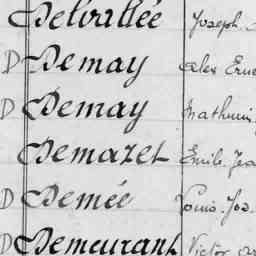 Delvallée Joseph
D Demay Alex Erne
D Demay Mathurin
Demazel Emile Jea
D Demée Louis Jos.
D Demeurant Victor